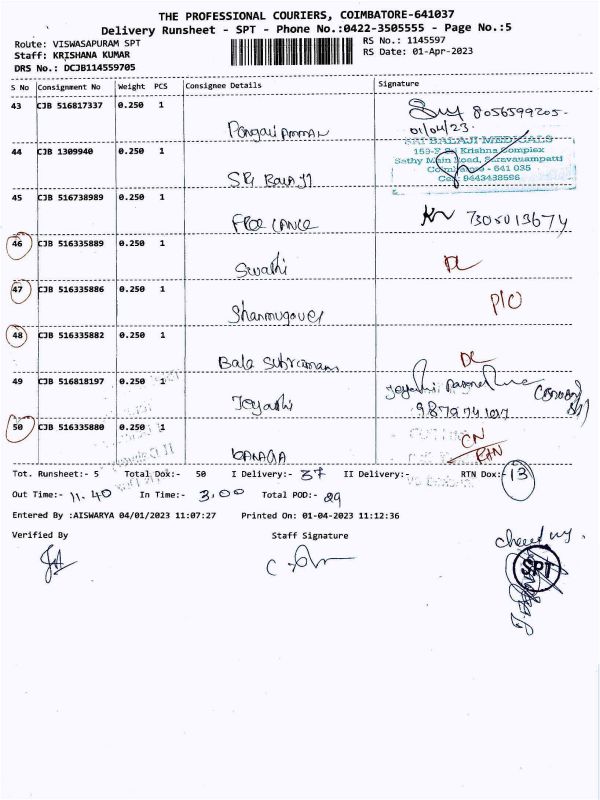 THE PROFESSIONAL COURIERS, COIMBATORE-641037
Delivery Runsheet - SPT - Phone No.:0422-3505555 - Page No.:5
Route: VISWASAPURAM SPT
RS No.: 1145597
Staff: KRISHANA KUMAR
RS Date: 01-Apr-2023
DRS No.: DCJB114559705
S No Consignment No Weight PCS Consignee Details Signature
43 CJB 516817337 0.250 1
8056599205-
01/04/23.
Pongali Amman
44 CJB 1309940 0.250 1
SRI BALAJI MEDICALS
159-E, Sri Krishna Complex
Sathy Main Road, Saravanampatti
Coimbatore - 641 035
Cell 9443438596
SRI BALAJI
45 CJB 516738989 0.250 1
7305013674
FREE LANCE
46 CJB 516335889 0.250 1
Swathi DL
47 CJB 516335886 0.250 1
P/O
48 CJB 516335882 0.250 1
Bala Subramani DL
49 CJB 516818197 0.250 1
Jeyanthi
9879741017
50 CJB 516335880 0.250 1
CN
RTN
KANAGA
Tot. Runsheet:- 5 Total Dox:- 50 I Delivery:- 37 II Delivery:- RTN Dox:- 13
Out Time:- 11.40 In Time:- 3.00 Total POD:- 29
Entered By :AISWARYA 04/01/2023 11:07:27 Printed On: 01-04-2023 11:12:36
Verified By Staff Signature
SPT